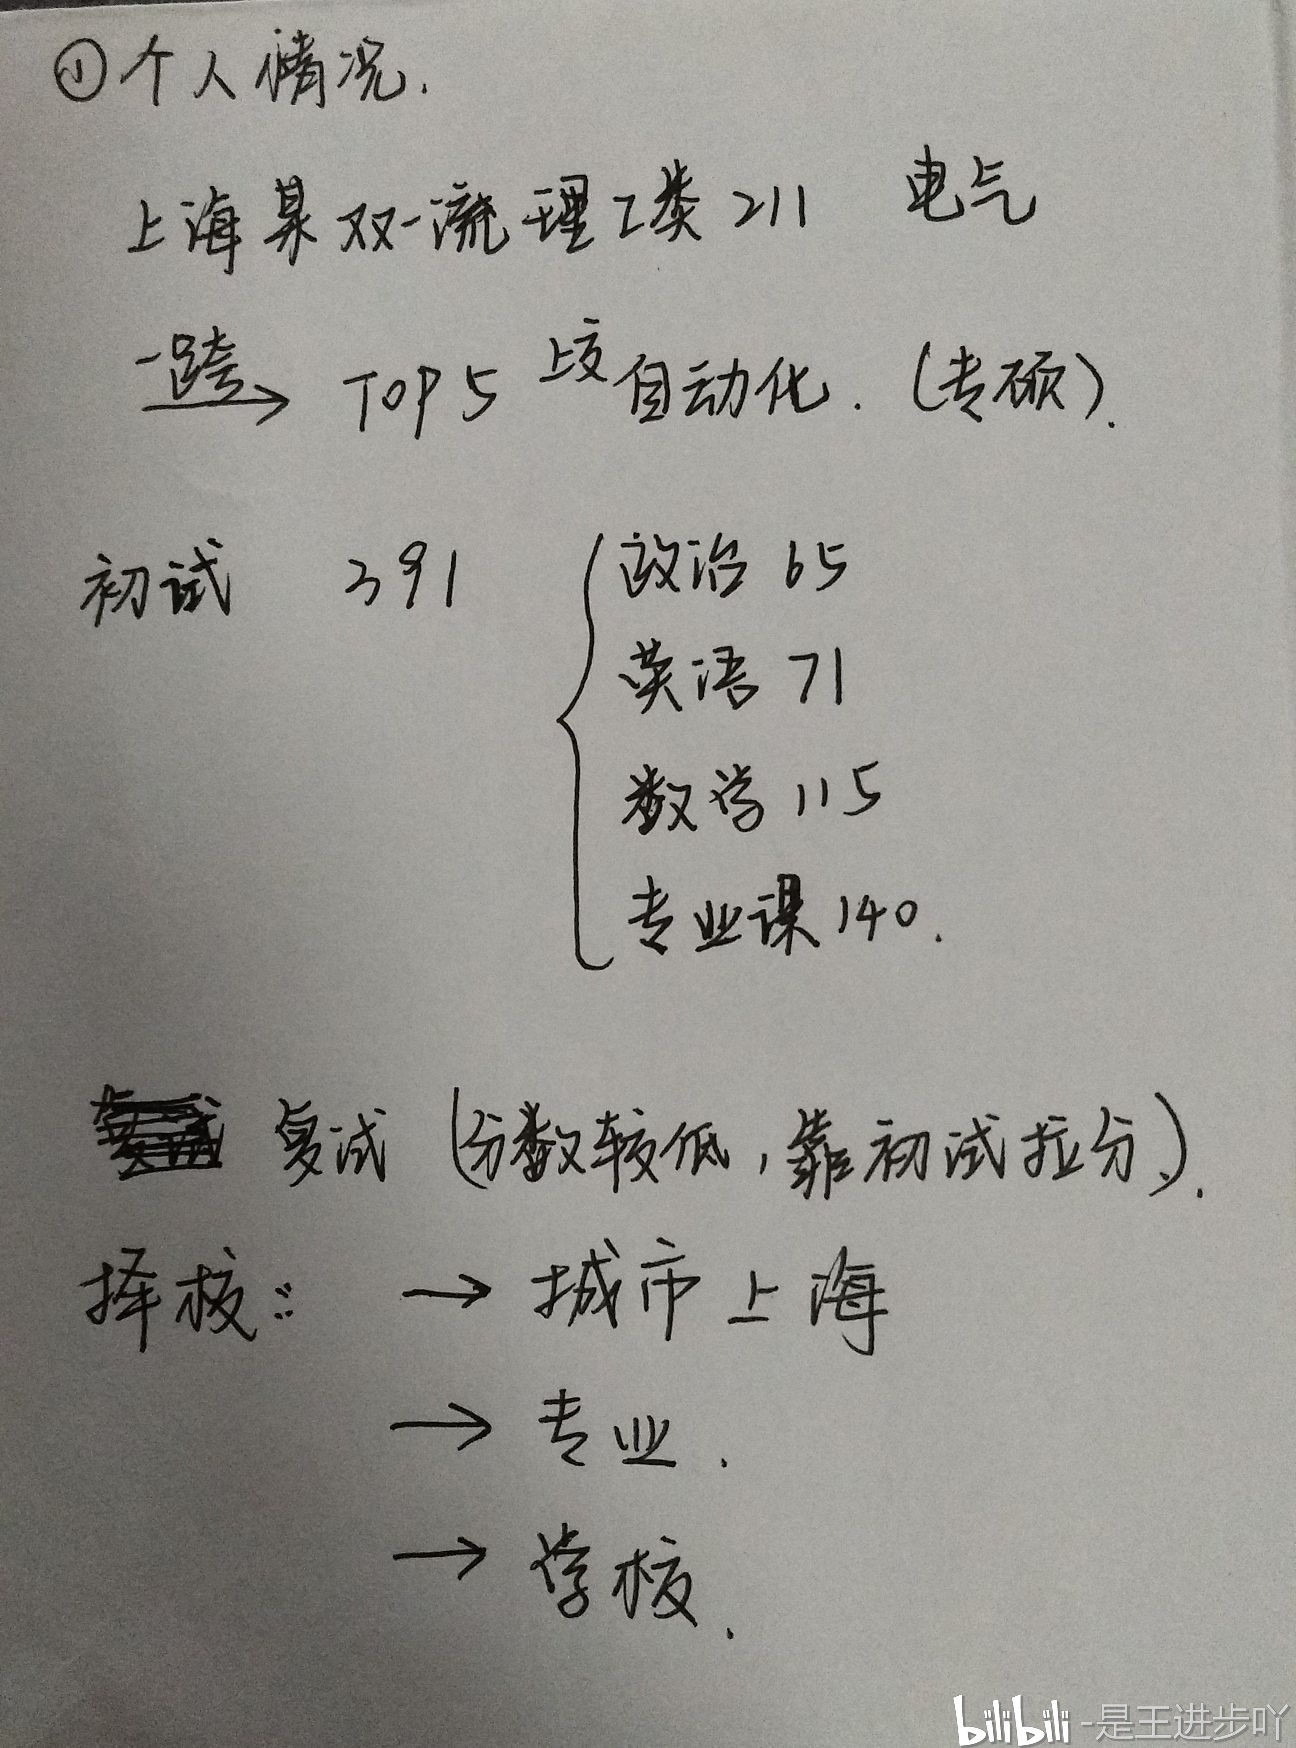 ①个人情况.
上海某双一流理工类211 电气
一跨→ TOP5 上交自动化.(专硕).
初试 391 政治 65
英语 71
数学 115
专业课 140.
复试(分数较低,靠初试拉分).
择校: → 城市上海
→ 专业.
→ 学校.
bilibili -是王进步吖